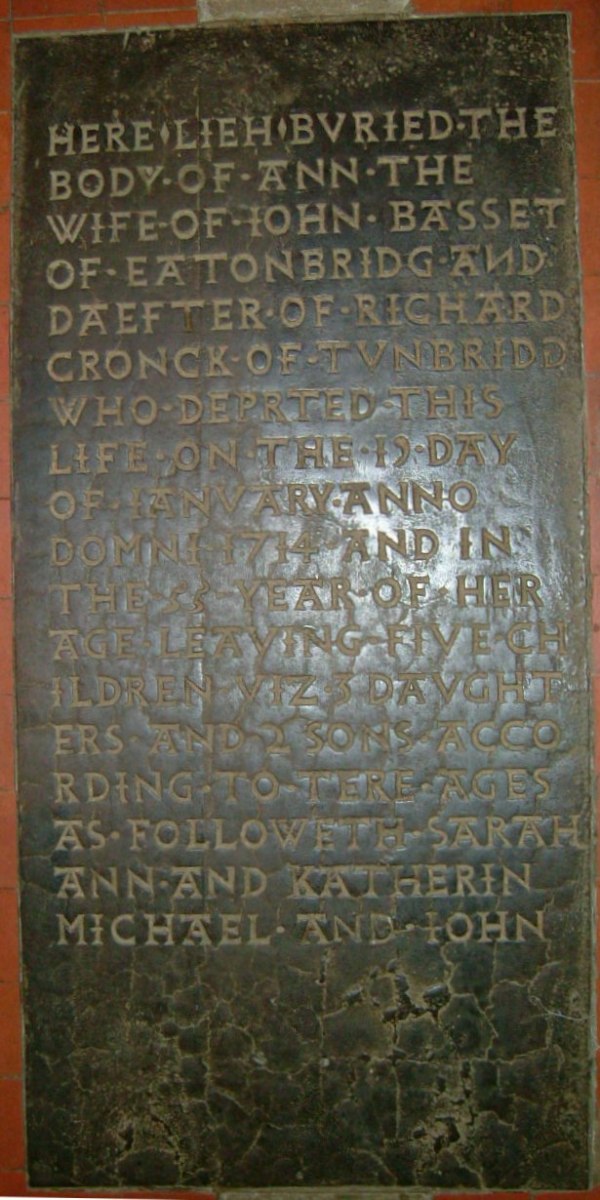 HERE·LIEH·BVRIED·THE
BODY·OF·ANN·THE
WIFE·OF·IOHN·BASSET
OF·EATONBRIDG·AND
DAEFTER·OF·RICHARD
CRONCK·OF·TVNBRIDG
WHO·DEPRTED·THIS
LIFE·ON·THE·19·DAY
OF·IANVARY·ANNO
DOMNI·1714·AND IN
THE·53·YEAR·OF·HER
AGE·LEAVING·FIVE·CH
ILDREN·VIZ·3·DAVGHT
ERS·AND·2·SONS·ACCO
RDING·TO·TERE·AGES
AS·FOLLOWETH·SARAH
ANN·AND KATHERIN
MICHAEL·AND·IOHN